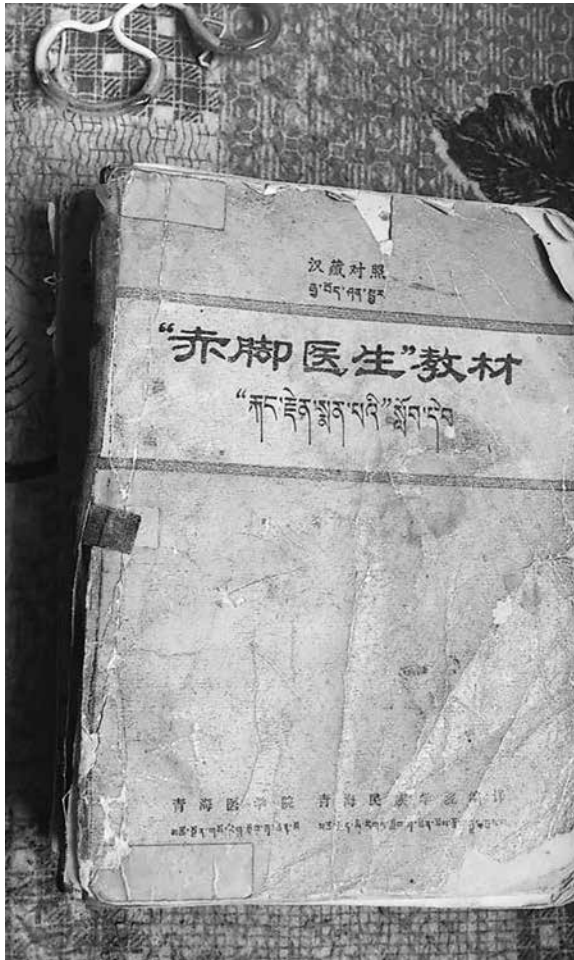 汉藏对照
རྒྱ་བོད་ཤན་སྦྱར
“赤脚医生”教材
“རྐང་རྗེན་སྨན་པའི”སློབ་དེབ
青海医学院 青海民族学院编译